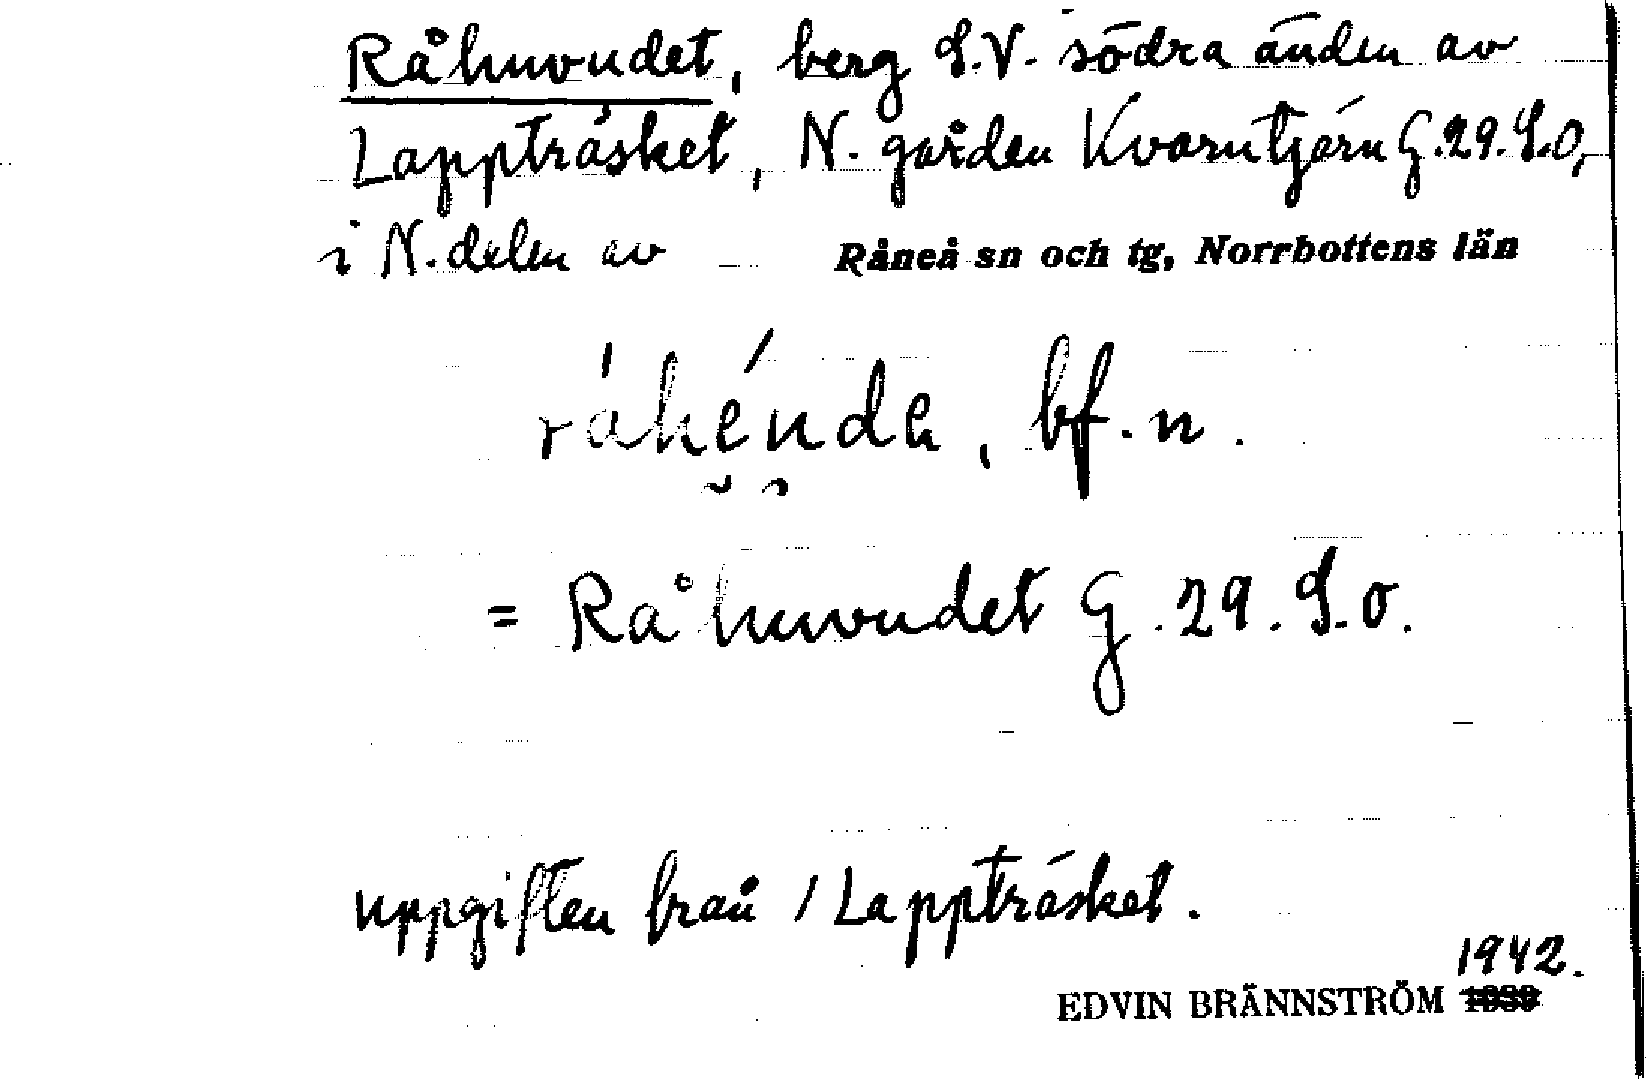 Råhuvudet, berg S.V. södra änden av
Lappträsket, N. gården Kvarntjärn G.29.S.O,
i N. delen av Råneå sn och tg, Norrbottens län
bf. n.
= Råhuvudet G. 29. S.o.
uppgiften från / Lappträsket.
1942.
EDVIN BRÄNNSTRÖM